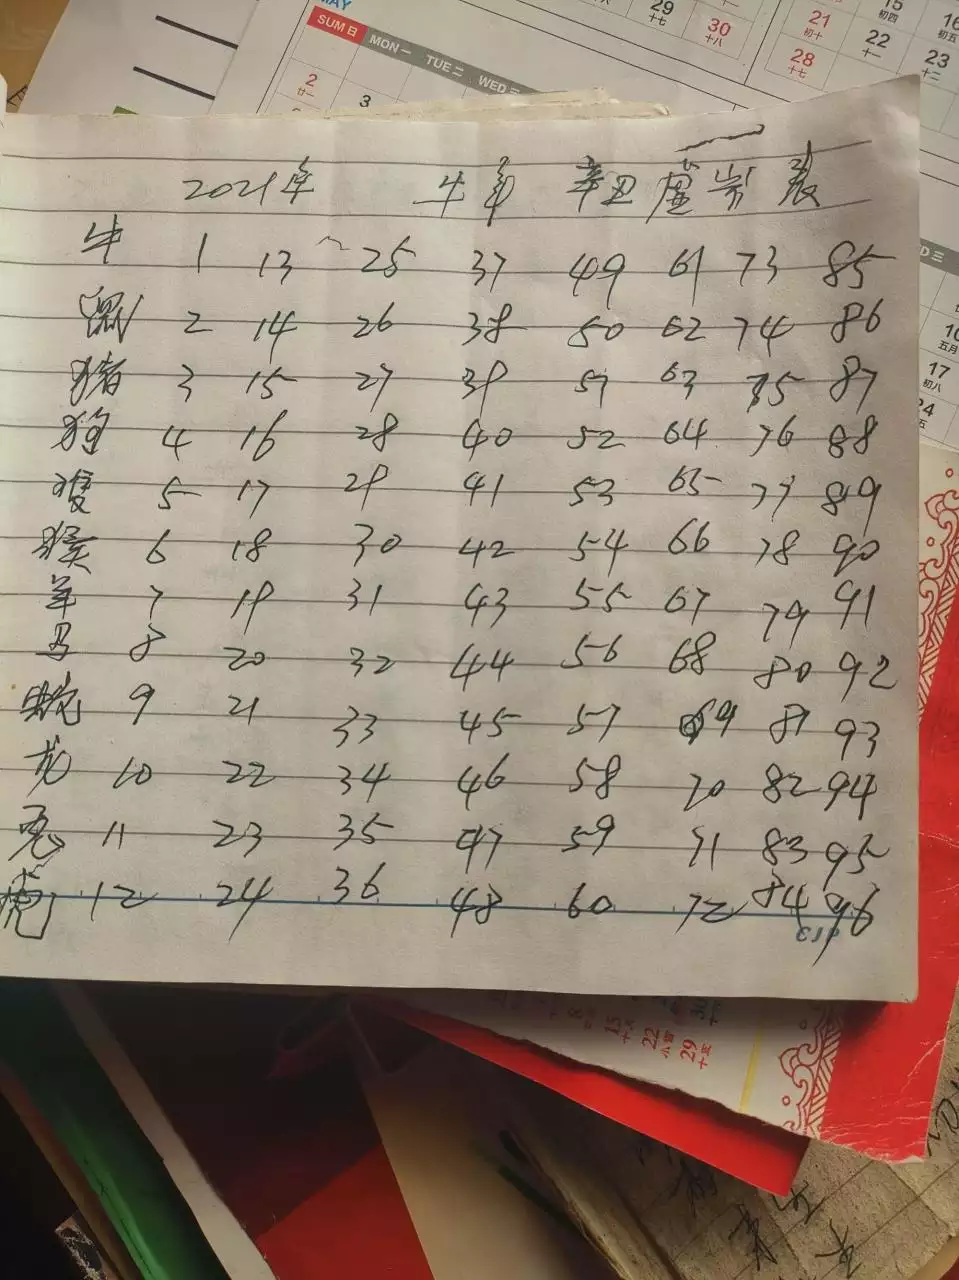 MAY
SUM 日 MON 一 TUE 二 WED 三
2 3
廿一
29
十七
30
十八
15 16
初四 初五
21 22 23
初十 十一 十二
28
十七
2021年 牛年 辛丑 虚岁表
牛 1 13 25 37 49 61 73 85
鼠 2 14 26 38 50 62 74 86
猪 3 15 27 39 51 63 75 87
狗 4 16 28 40 52 64 76 88
5 17 29 41 53 65 77 89
猴 6 18 30 42 54 66 78 90
羊 7 19 31 43 55 67 79 91
马 8 20 32 44 56 68 80 92
蛇 9 21 33 45 57 69 81 93
龙 10 22 34 46 58 70 82 94
兔 11 23 35 47 59 71 83 95
虎 12 24 36 48 60 72 84 96
三
10
五月
17
初八
24
15 22 29
十五